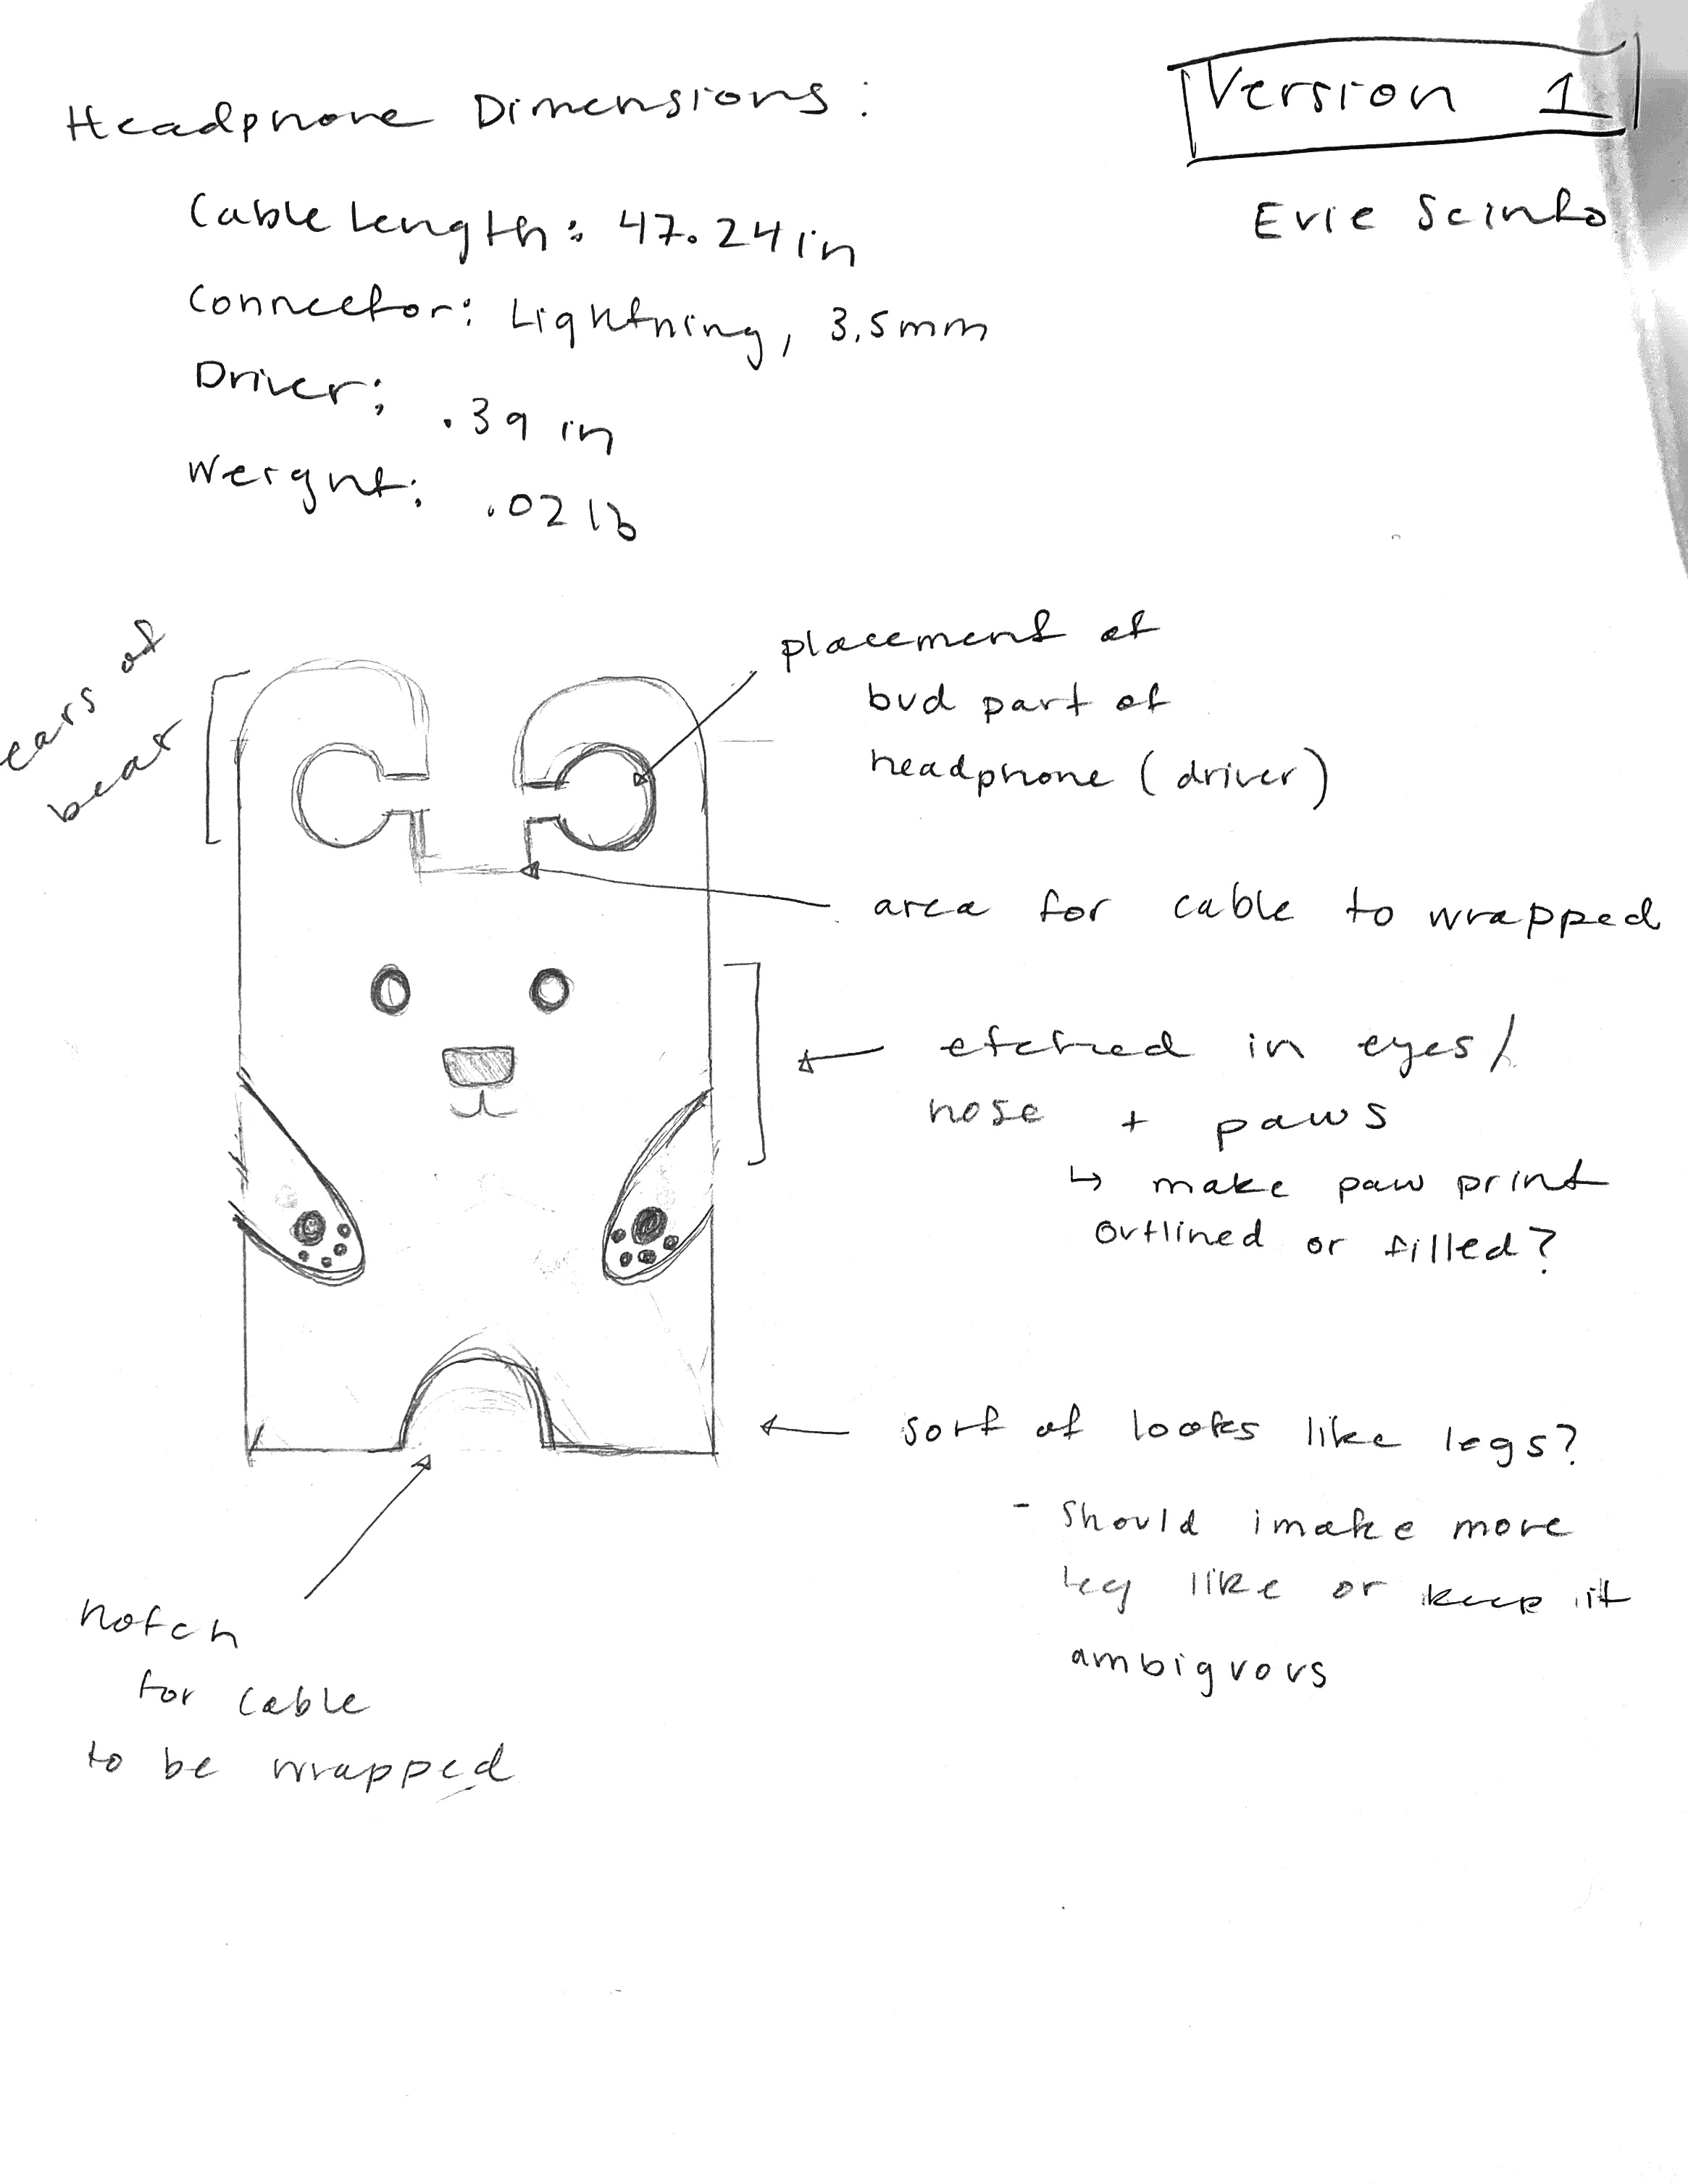 Version 1
Evie Scinto
Headphone Dimensions:
Cable Length: 47.24in
Connector: Lightning, 3.5mm
Driver: .39 in
Weight: .02 lb
ears of
bear
placement of
bud part of
headphone (driver)
area for cable to wrapped
etched in eyes/
nose + paws
↳ make paw print
outlined or filled?
sort of looks like legs?
- should i make more
leg like or keep it
ambiguous
notch
for cable
to be wrapped